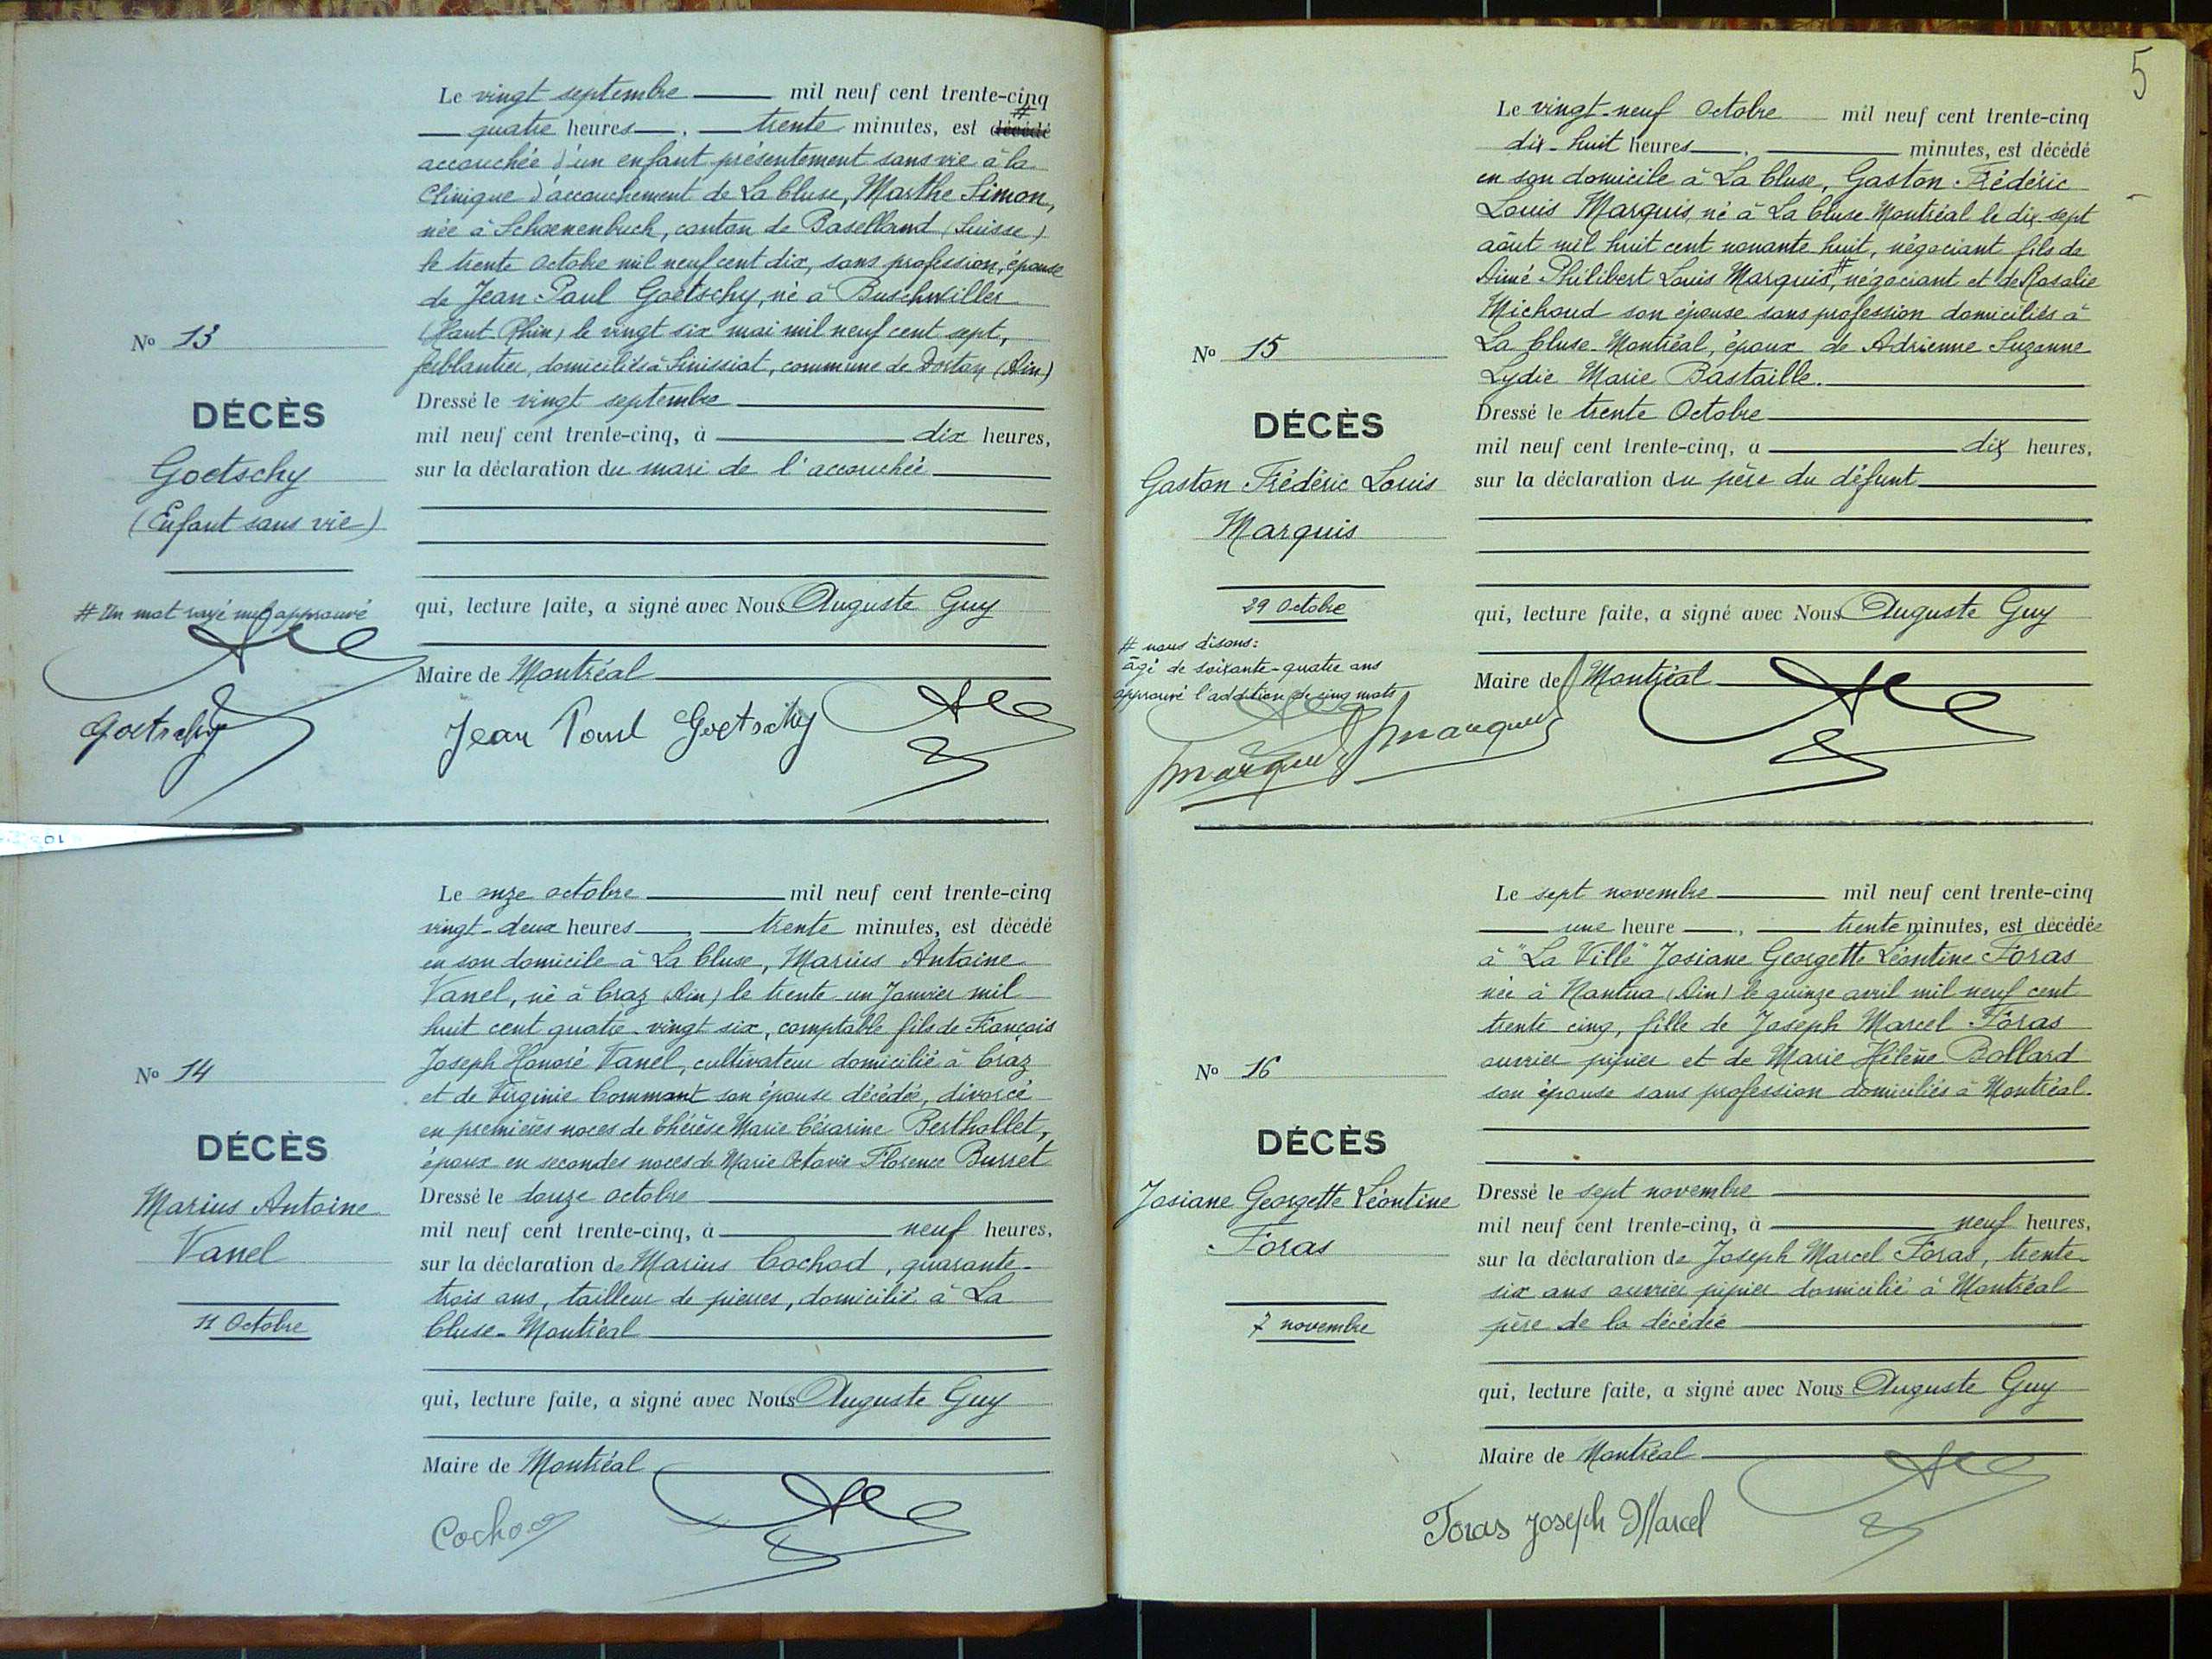 Le vingt septembre mil neuf cent trente-cinq
quatre heures, trente minutes, est décédé #
accouchée d'un enfant présentement sans vie à la
Clinique d'accouchement de La Cluse, Marthe Simon,
née à Schoenenbuch, canton de Baselland (Suisse)
le trente Octobre mil neuf cent dix, sans profession, épouse
de Jean Paul Goetschy, né à Buschwiller
(Haut Rhin) le vingt six mai mil neuf cent sept,
ferblantier, domiciliés à Sinissiat, commune de Dortan (Ain)
Dressé le vingt septembre
mil neuf cent trente-cinq, à dix heures,
sur la déclaration du mari de l'accouchée
qui, lecture faite, a signé avec Nous Auguste Guy
Maire de Montréal
Jean Paul Goetschy
No 13
DÉCÈS
Goetschy
(Enfant sans vie)
# Un mot rayé nul approuvé
Goetschy
Le onze octobre mil neuf cent trente-cinq
vingt-deux heures, trente minutes, est décédé
en son domicile à La Cluse, Marius Antoine
Vanel, né à Craz (Ain) le trente un Janvier mil
huit cent quatre-vingt six, comptable fils de François
Joseph Honoré Vanel, cultivateur domicilié à Craz
et de Virginie Commant son épouse décédée, divorcé
en premières noces de Thérèse Marie Césarine Berthollet,
époux en secondes noces de Marie Octavie Florence Burret
Dressé le douze octobre
mil neuf cent trente-cinq, à neuf heures,
sur la déclaration de Marius Cochod, quarante-
trois ans, tailleur de pierres, domicilié à La
Cluse-Montréal
qui, lecture faite, a signé avec Nous Auguste Guy
Maire de Montréal
Cochod
No 14
DÉCÈS
Marius Antoine
Vanel
11 Octobre
5
Le vingt-neuf Octobre mil neuf cent trente-cinq
dix-huit heures, minutes, est décédé
en son domicile à La Cluse, Gaston Frédéric
Louis Marquis né à La Cluse-Montréal le dix sept
août mil huit cent nonante huit, négociant fils de
Aimé Philibert Louis Marquis #, négociant et de Rosalie
Michoud son épouse sans profession domiciliés à
La Cluse-Montréal, époux de Adrienne Suzanne
Lydie Marie Bastaille.
Dressé le trente Octobre
mil neuf cent trente-cinq, à dix heures,
sur la déclaration du père du défunt
qui, lecture faite, a signé avec Nous Auguste Guy
Maire de Montréal
No 15
DÉCÈS
Gaston Frédéric Louis
Marquis
29 Octobre
# nous disons:
âgé de soixante-quatre ans
approuvé l'addition de cinq mots
Marquis Marquis
Le sept novembre mil neuf cent trente-cinq
une heure, trente minutes, est décédée
à "La Ville" Josiane Georgette Léontine Foras
née à Nantua (Ain) le quinze avril mil neuf cent
trente cinq, fille de Joseph Marcel Foras
ouvrier pipier et de Marie Hélène Bollard
son épouse sans profession domiciliés à Montréal.
Dressé le sept novembre
mil neuf cent trente-cinq, à neuf heures,
sur la déclaration de Joseph Marcel Foras, trente-
six ans ouvrier pipier domicilié à Montréal
père de la décédée
qui, lecture faite, a signé avec Nous Auguste Guy
Maire de Montréal
Foras Joseph Marcel
No 16
DÉCÈS
Josiane Georgette Léontine
Foras
7 novembre